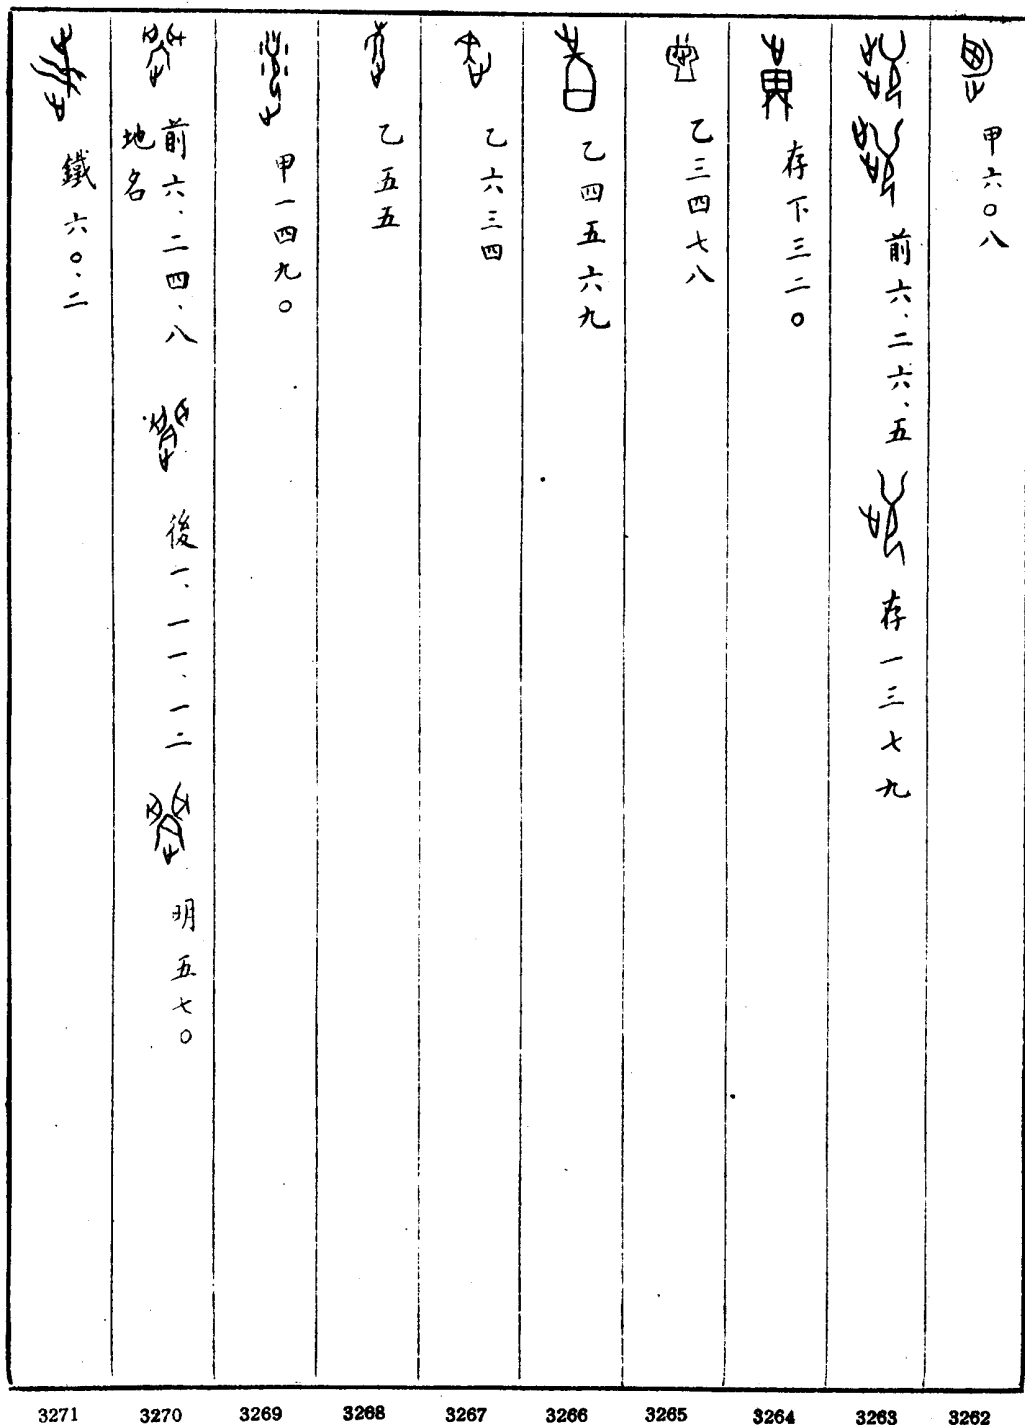 甲六〇八
前六、二六、五 存一三七九
存下三二〇
乙三四七八
乙四五六九
乙六三四
乙五五
甲一四九〇
前六、二四、八 後一、一一、一二 明五七〇
地名
鐵六〇、二
3271 3270 3269 3268 3267 3266 3265 3264 3263 3262